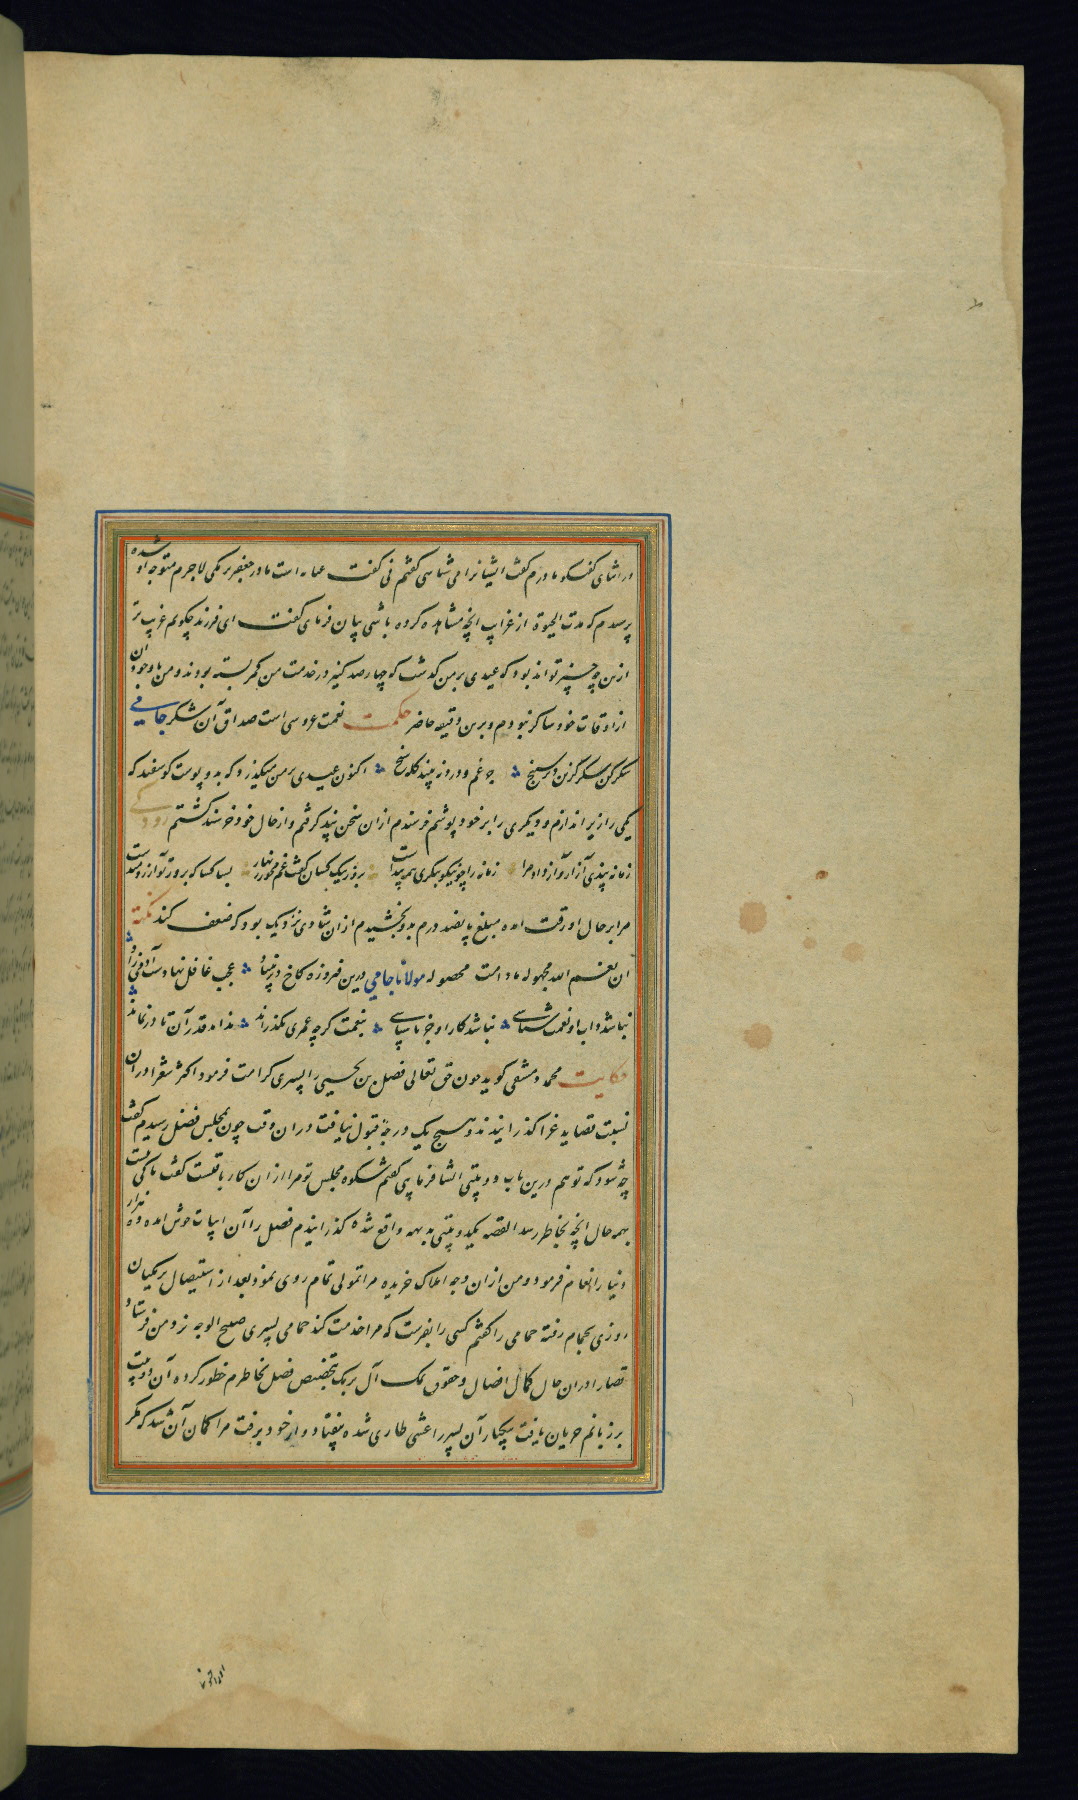 در اثنای گفتگو مادرم گفت ایشانرا می شناسی گفتم نی گفت عبا ده است مادر جعفر برمکی لاجرم متوجه او شده
پرسیدم که مدت الحیوة از غرایب آنچه مشاهده کرده باشی بیان فرمای گفت ای فرزند چکویم غریب تر
ازین چه چیز تواند بود که عیدی بر من گذشت که چهارصد کنیز در خدمت من کمر بسته بودند و من با وجود آن
از اوقات خود شاکر نبودم و برین وتیره حاضر حکمت نعمت عروسی است صداق آن شکر جامی
شکر کن شکر کزین دیر سپنج چه غم و درد روزی چند کله سنج اکنون عیدی بر من میگذرد که به دو پوست گوسفند که
یکی را زیر اندازم و دیگری را بر خود پوشم خرسندم از ان سخن پند گرفتم و از حال خود خرسند گشتم رودکی
زمانه پندی آزادوار داد مرا زمانه را چو نکو بنگری همه پندست بروز نیک کسان گفت غم مخور زنهار بسا کسا که بروز تو آرزومندست
مرا بر حال او رقت آمده مبلغ پانصد درم بدو بخشیدم از ان شادی نزدیک بود که ضعف کند نکته
ان نعم الله مجهولة ما دامت محصوله مولانا جامی درین فیروزه کاخ دیر بنیاد عجب غافل نهادست آدمی زاد
نباشد داب او نعمت شناسی نباشد کار او جز ناسپاسی بنعمت گرچه عمری بگذراند نداند قدر آن تا در نماند
حکایت محمد دمشقی گوید چون حق تعالی فضل بن یحیی را پسری کرامت فرمود اکثر شعرا در ان
نسبت قصاید غرا گذرانیدند و هیچ یک درجه قبول نیافت در ان وقت چون بمجلس فضل رسیدم گفت
چه شود که تو هم درین باب دو بیتی انشا فرمایی گفتم شکوه مجلس تو مرا از ان کار باز
بهر حال آنچه بخاطر رسد القصه یک دو بیتی بدیهه واقع شده گذرانیدم فضل را آن ابیات خوش آمده ده هزار
دینار انعام فرمود و من از ان وجه املاک خریده مرا تمولی تمام روی نمود بعد از استیصال برمکیان
روزی بحمام رفته حمامی را گفتم کسی را بفرست که مرا خدمت کند حمامی پسری صبیح الوجه نزد من فرستاد
قضا را در ان حال کمال افضال و حقوق نمک آل برمک بتخصیص فضل بخاطرم خطور کرده آن دو بیت
بر زبانم جریان یافت بیکبار آن پسر را غشی طاری شده بیفتاد و از خود برفت مرا گمان آن شد که مگر